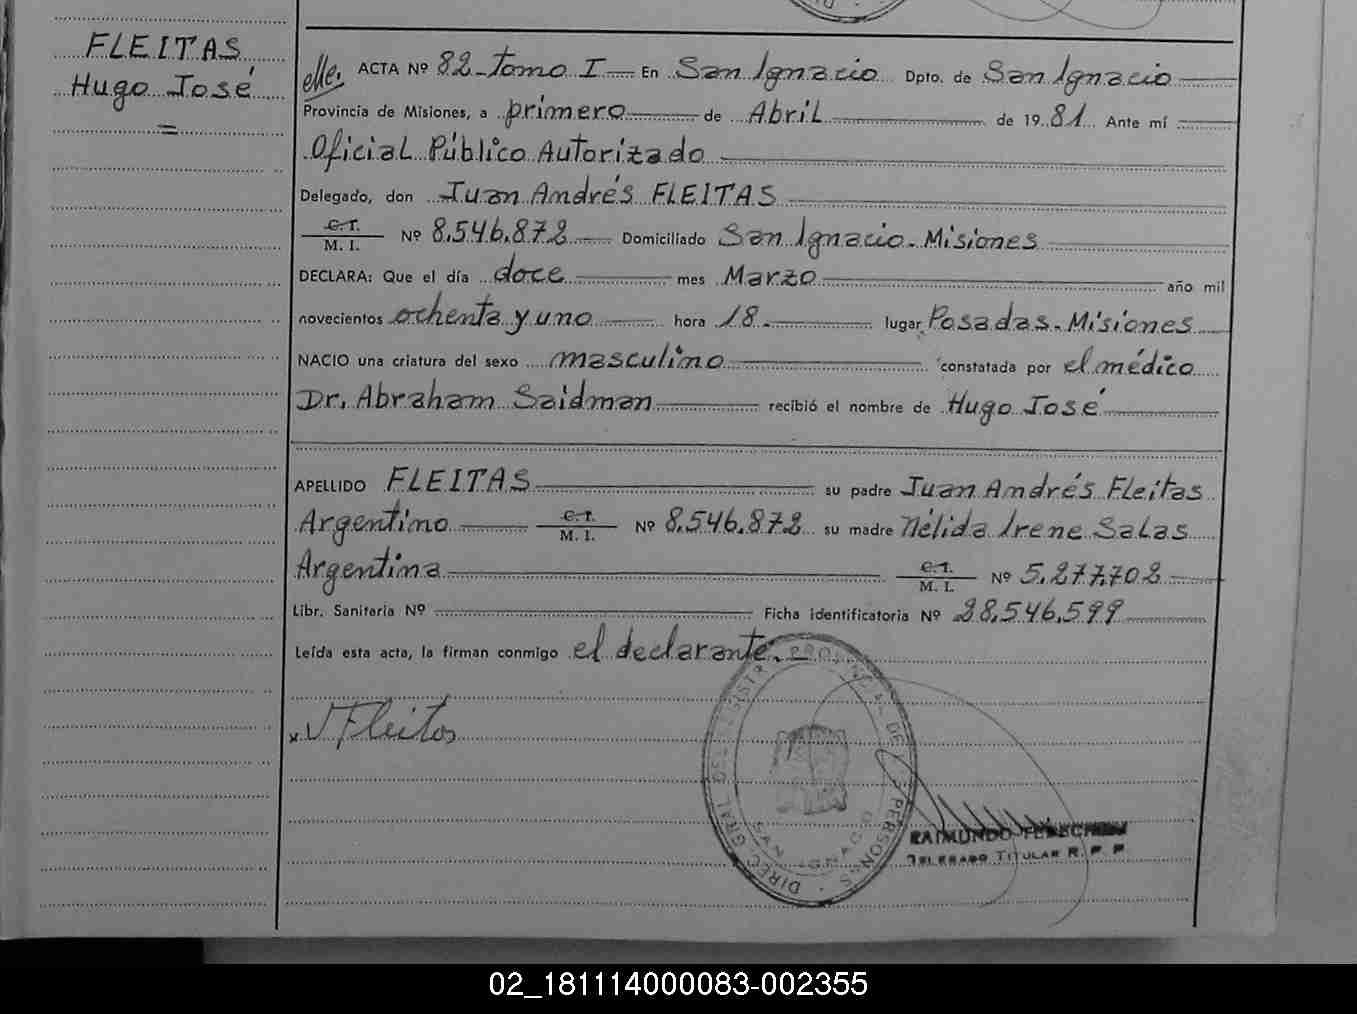 FLEITAS
Hugo José
=
ACTA Nº 82 - Tomo I.- En San Ignacio Dpto. de San Ignacio
Provincia de Misiones, a primero de Abril de 1981 Ante mí
Oficial Público Autorizado
Delegado, don Juan Andrés FLEITAS
C.I.
M. I. Nº 8.546.872 Domiciliado San Ignacio - Misiones
DECLARA: Que el día doce mes Marzo año mil
novecientos ochenta y uno hora 18.- lugar Posadas - Misiones
NACIO una criatura del sexo masculino constatada por el médico
Dr. Abraham Saidman recibió el nombre de Hugo José
APELLIDO FLEITAS su padre Juan Andrés Fleitas
Argentino C.I. M. I. Nº 8.546.872 su madre Nélida Irene Salas
Argentina C.I. M. I. Nº 5.277.702
Libr. Sanitaria Nº Ficha identificatoria Nº 28.546.599
Leída esta acta, la firman conmigo el declarante.-
x J Fleitas
DIREC. GRAL. DEL REGISTR. PROVINCIAL DE PERSONAS
SAN IGNACIO
RAIMUNDO
DELEGADO TITULAR R. P. P.
02_181114000083-002355